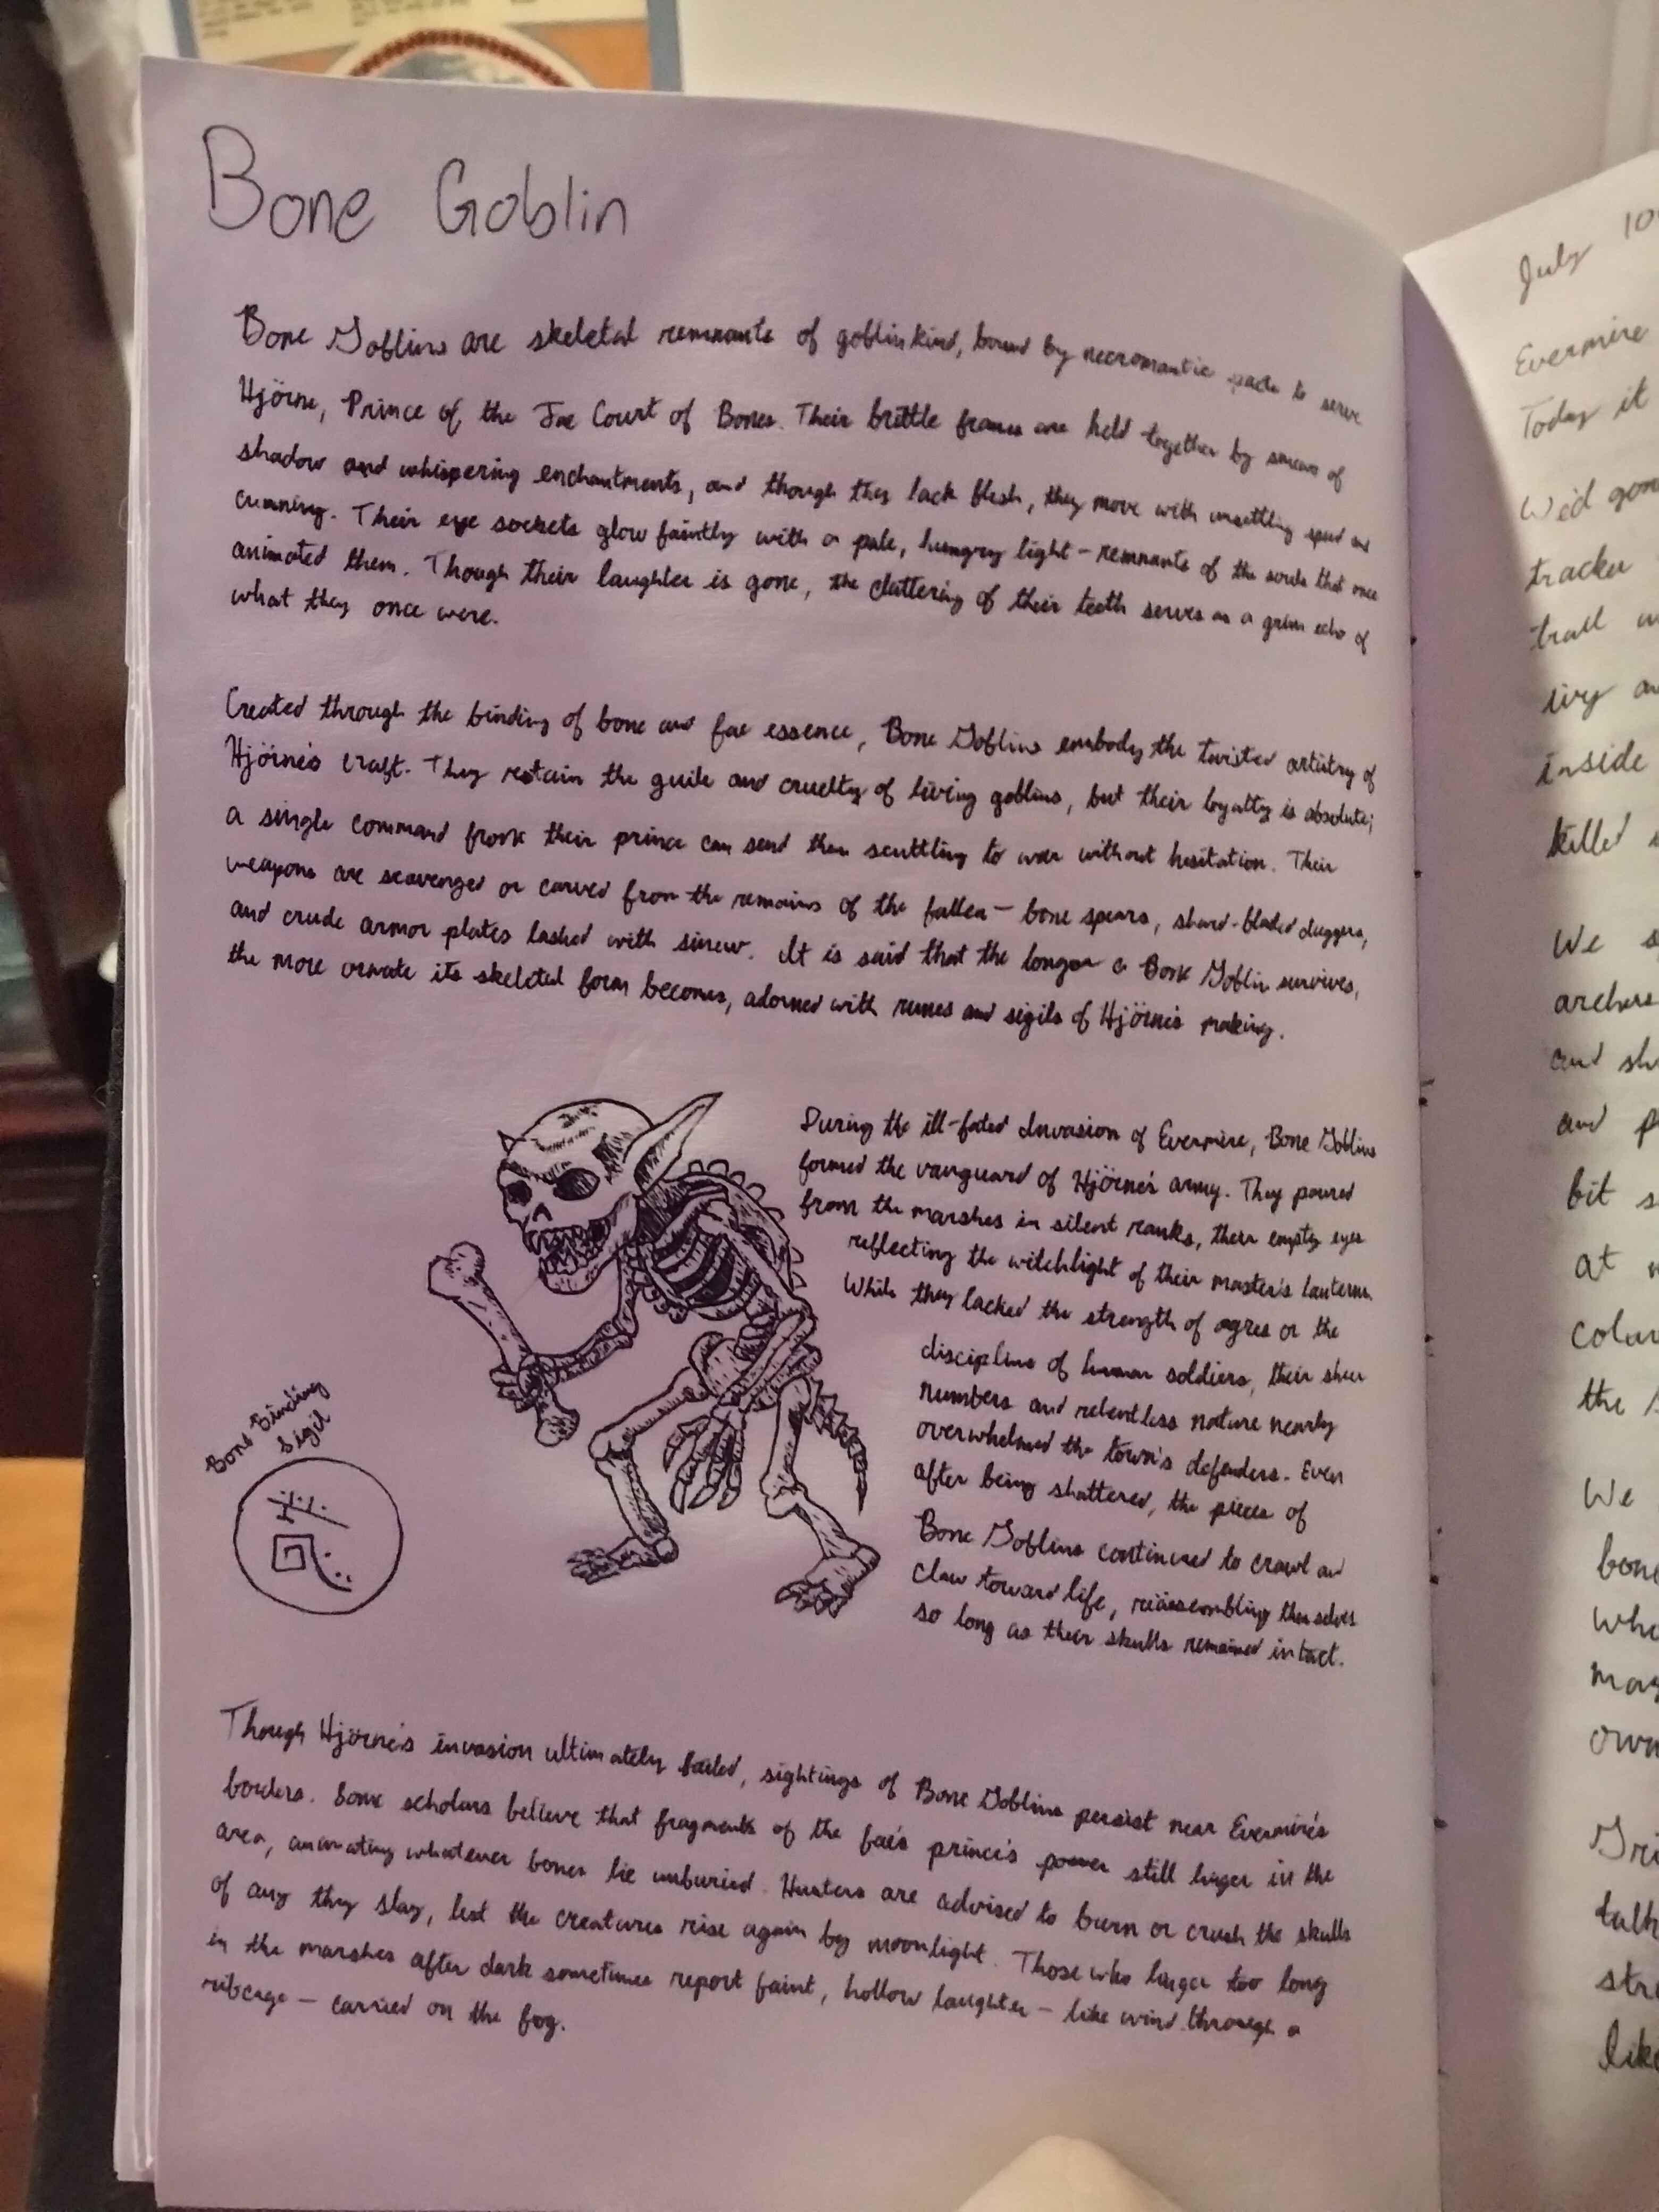 Bone Goblin
Bone Goblins are skeletal remnants of goblinkind, bound by necromantic pacts to serve
Hjörne, Prince of the Fae Court of Bones. Their brittle frames are held together by sinews of
shadow and whispering enchantments, and though they lack flesh, they move with unsettling speed and
cunning. Their eye sockets glow faintly with a pale, hungry light - remnants of the souls that once
animated them. Though their laughter is gone, the clattering of their teeth serves as a grim echo of
what they once were.
Created through the binding of bone and fae essence, Bone Goblins embody the twisted artistry of
Hjörne's craft. They retain the guile and cruelty of living goblins, but their loyalty is absolute;
a single command from their prince can send them scuttling to war without hesitation. Their
weapons are scavenged or carved from the remains of the fallen — bone spears, shard-bladed daggers,
and crude armor plates lashed with sinew. It is said that the longer a Bone Goblin survives,
the more ornate its skeletal form becomes, adorned with runes and sigils of Hjörne's making.
During the ill-fated Invasion of Evermire, Bone Goblins
formed the vanguard of Hjörne's army. They poured
from the marshes in silent ranks, their empty eyes
reflecting the witchlight of their master's lanterns.
While they lacked the strength of ogres or the
discipline of human soldiers, their sheer
numbers and relentless nature nearly
overwhelmed the town's defenders. Even
after being shattered, the pieces of
Bone Goblins continued to crawl and
claw toward life, reässembling themselves
so long as their skulls remained intact.
Bone-Binding
Sigil
Though Hjörne's invasion ultimately failed, sightings of Bone Goblins persist near Evermire's
borders. Some scholars believe that fragments of the fae's prince's power still linger in the
area, animating whatever bones lie unburied. Hunters are advised to burn or crush the skulls
of any they slay, lest the creatures rise again by moonlight. Those who linger too long
in the marshes after dark sometimes report faint, hollow laughter — like wind through a
ribcage — carried on the fog.
July 10
Evermire
Today it
We'd gon
tracker
trail
ivy
inside
killed
We s
archers
and sh
and p
bit s
at
colo
the
We
bone
who
mag
own
talk
str
like